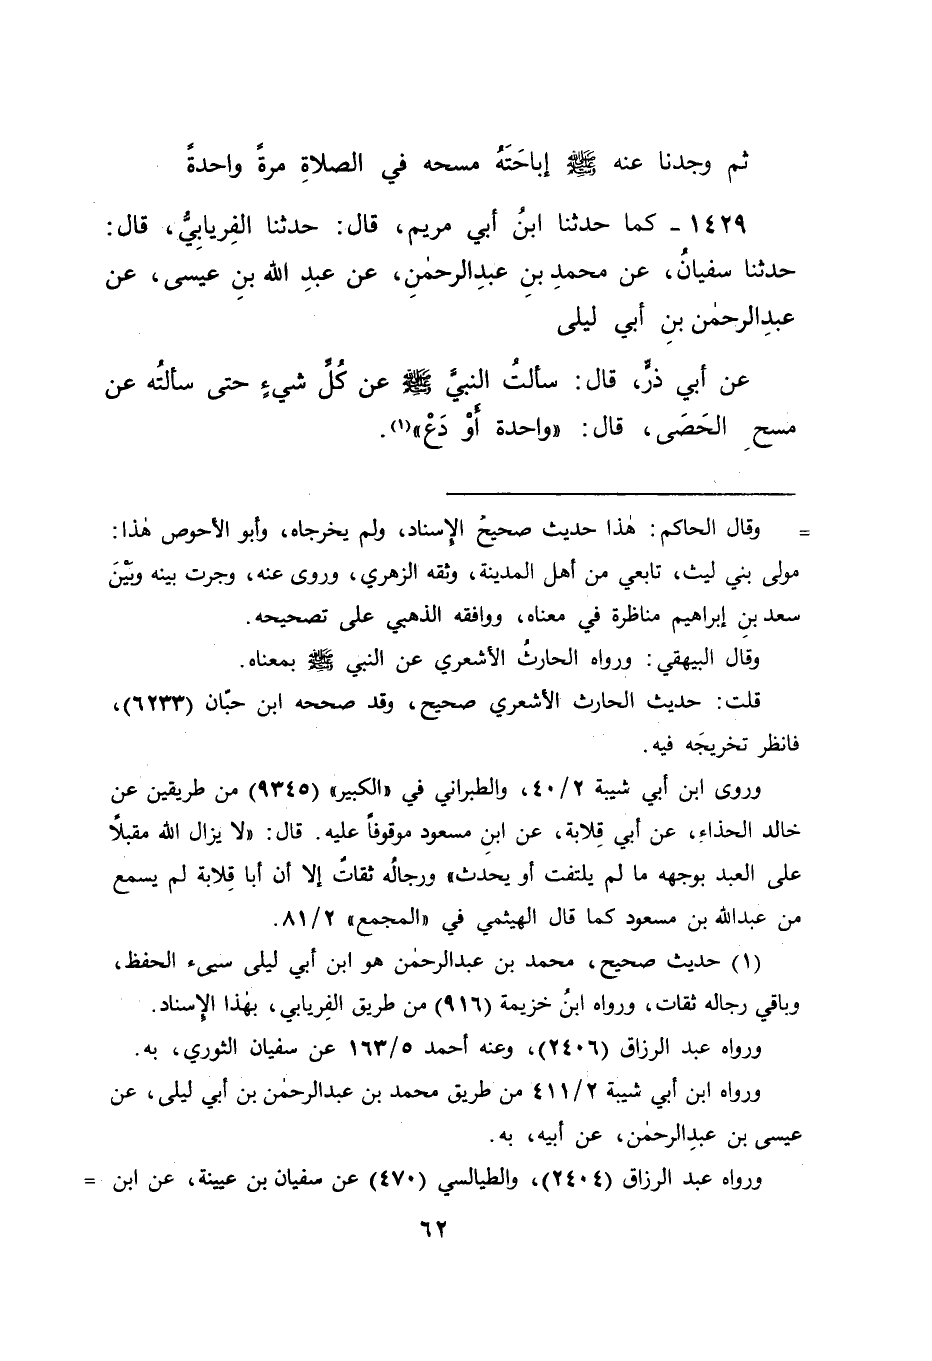 ثم وجدنا عنه ﷺ إباحَتَهُ مسحه في الصلاةِ مرةً واحدةً
١٤٢٩ ـ كما حدثنا ابنُ أبي مريم، قال: حدثنا الفِريابيُّ، قال:
حدثنا سفيانُ، عن محمدِ بنِ عبدِالرحمٰنِ، عن عبدِ الله بنِ عيسى، عن
عبدِالرحمٰن بنِ أبي ليلى
عن أبي ذرٍّ، قال: سألتُ النبيَّ ﷺ عن كُلِّ شيءٍ حتى سألتُه عن
مسحِ الحَصَى، قال: «واحدة أَوْ دَعْ»(١).
= وقال الحاكم: هٰذا حديث صحيحُ الإِسناد، ولم يخرجاه، وأبو الأحوص هٰذا:
مولى بني ليث، تابعي من أهل المدينة، وثقه الزهري، وروى عنه، وجرت بينه وبَيْنَ
سعد بنِ إبراهيم مناظرة في معناه، ووافقه الذهبي على تصحيحه.
وقال البيهقي: ورواه الحارثُ الأشعري عن النبي ﷺ بمعناه.
قلت: حديث الحارث الأشعري صحيح، وقد صححه ابن حبّان (٦٢٣٣)،
فانظر تخريجَه فيه.
وروى ابن أبي شيبة ٤٠/٢، والطبراني في «الكبير» (٩٣٤٥) من طريقين عن
خالد الحذاء، عن أبي قِلابة، عن ابنِ مسعود موقوفاً عليه. قال: «لا يزال الله مقبلاً
على العبد بوجهه ما لم يلتفت أو يحدث» ورجالُه ثقاتٌ إلا أن أبا قِلابة لم يسمع
من عبدالله بن مسعود كما قال الهيثمي في «المجمع» ٨١/٢.
(١) حديث صحيح، محمد بن عبدالرحمٰن هو ابن أبي ليلى سيىء الحفظ،
وباقي رجاله ثقات، ورواه ابنُ خزيمة (٩١٦) من طريق الفِريابي، بهٰذا الإِسناد.
ورواه عبد الرزاق (٢٤٠٦)، وعنه أحمد ١٦٣/٥ عن سفيان الثوري، به.
ورواه ابن أبي شيبة ٤١١/٢ من طريق محمد بن عبدالرحمٰن بن أبي ليلى، عن
عيسى بن عبدِالرحمٰن، عن أبيه، به.
ورواه عبد الرزاق (٢٤٠٤)، والطيالسي (٤٧٠) عن سفيان بن عيينة، عن ابن =
٦٢